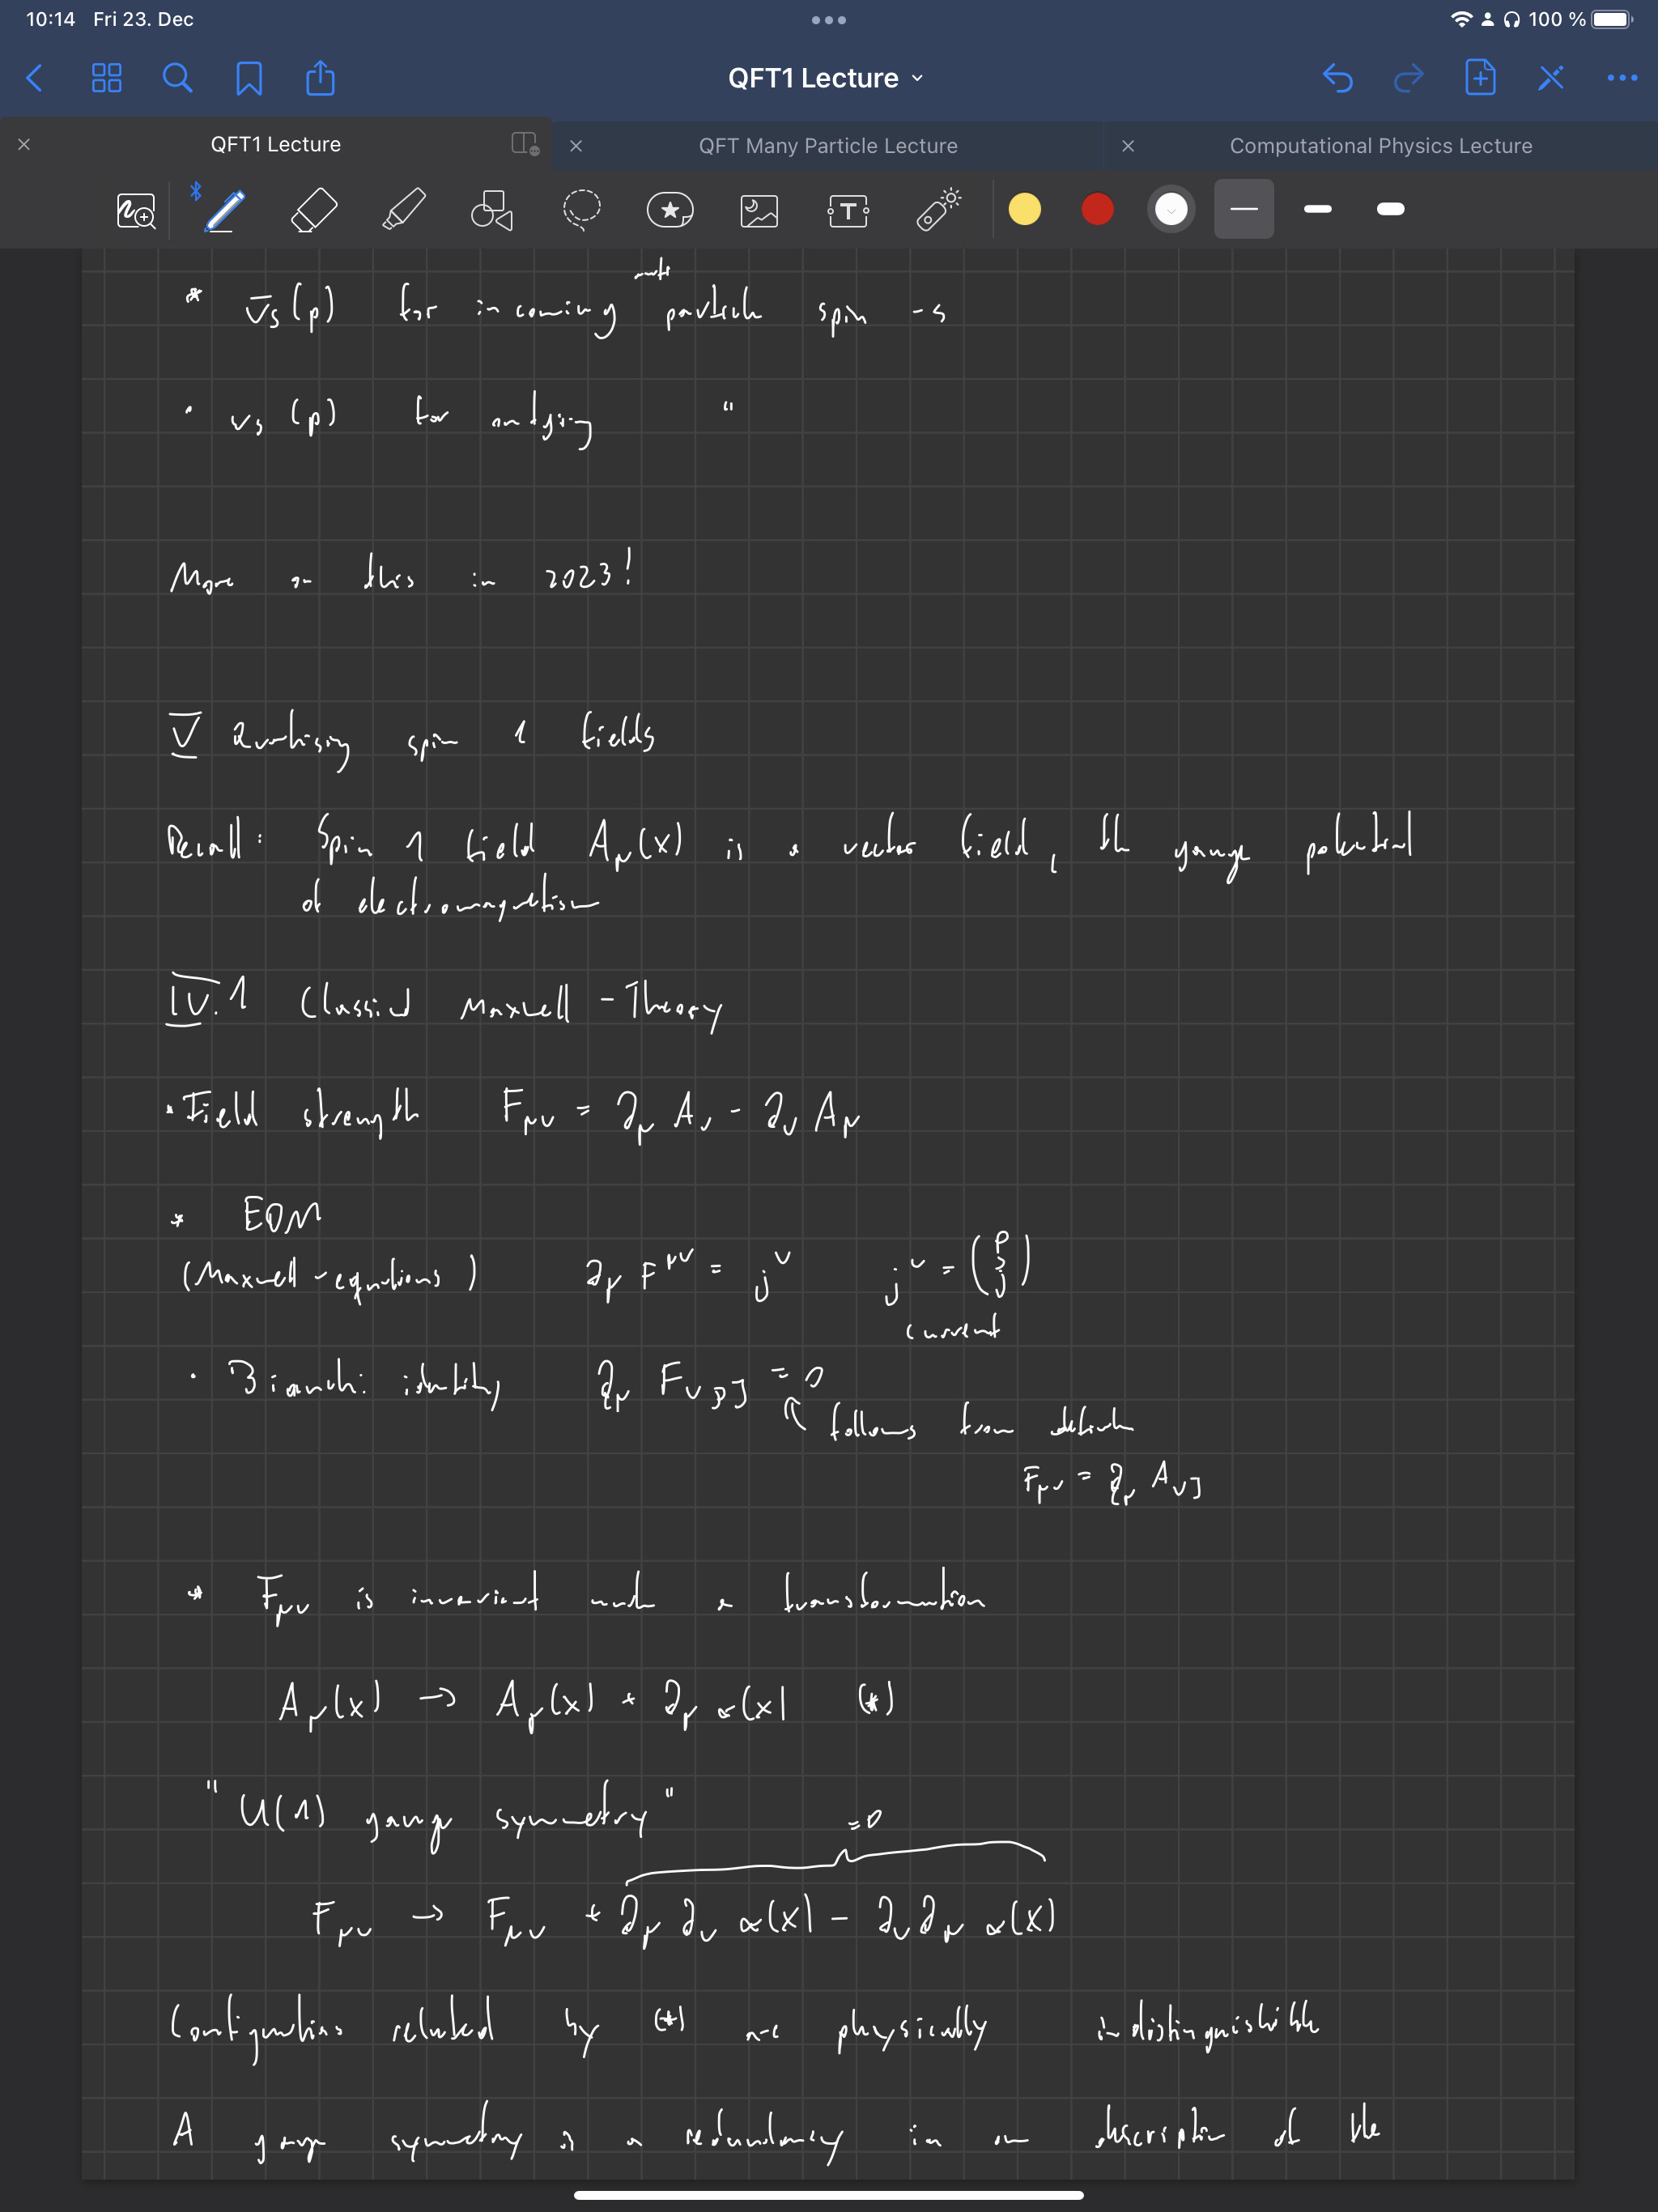 10:14 Fri 23. Dec
100 %
QFT1 Lecture
QFT1 Lecture
QFT Many Particle Lecture
Computational Physics Lecture
anti
* v̅s(p) for incoming particle spin -s
· vs(p) for outgoing "
More on this in 2023!
V Quantising spin 1 fields
Recall: Spin 1 field Aμ(x) is a vector field, the gauge potential
of electromagnetism
IV.1 Classical Maxwell-Theory
· Field strength Fμν = ∂μ Aν - ∂ν Aμ
* EOM
(Maxwell-equations) ∂μ F^μν = j^ν j^ν = (ρ j)
current
· Bianchi identity ∂[μ Fνρ] = 0
follows from definition
Fμν = ∂[μ Aν]
* Fμν is invariant under a transformation
Aμ(x) → Aμ(x) + ∂μ α(x) (*)
"U(1) gauge symmetry"
=0
Fμν → Fμν + ∂μ ∂ν α(x) - ∂ν ∂μ α(x)
Configurations related by (*) are physically indistinguishible
A gauge symmetry is a redundancy in our description of the